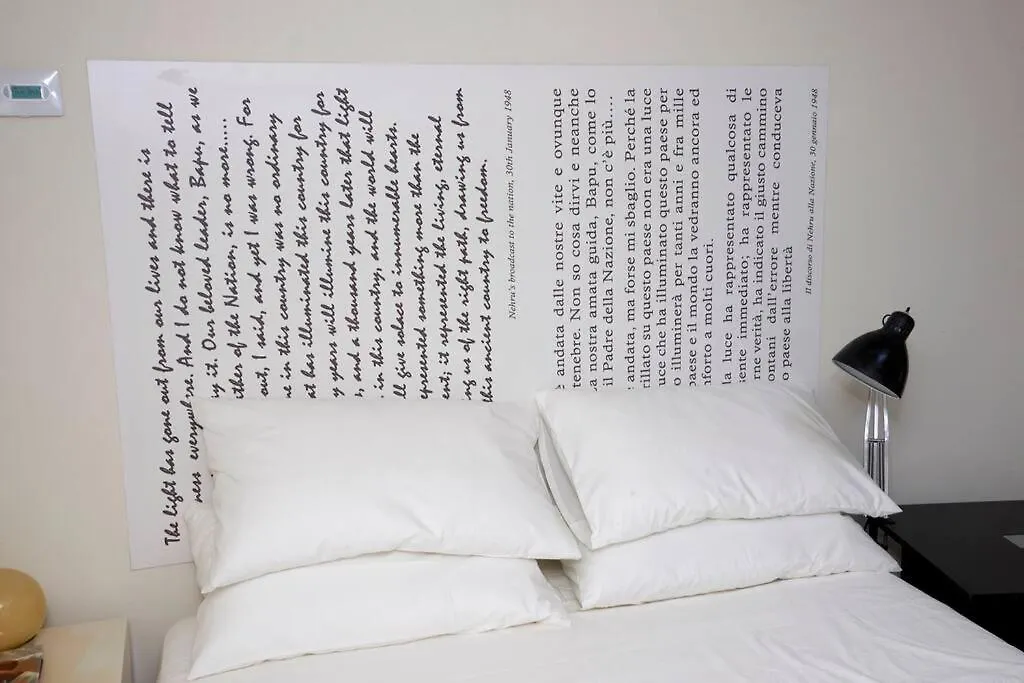 The light has gone out from our lives and there is
ness everywhere. And I do not know what to tell
y it. Our beloved leader, Bapu, as we
ther of the Nation, is no more....
out, I said, and yet I was wrong. For
ne in this country was no ordinary
at has illuminated this country for
y years will illumine this country for
, and a thousand years later that light
in this country, and the world will
ll give solace to innumerable hearts.
epresented something more than the
ent; it represented the living, eternal
ng us of the right path, drawing us from
this ancient country to freedom.
Nehru's broadcast to the nation, 30th January 1948
è andata dalle nostre vite e ovunque
tenebre. Non so cosa dirvi e neanche
a nostra amata guida, Bapu, come lo
il Padre della Nazione, non c'è più....
andata, ma forse mi sbaglio. Perché la
rillato su questo paese non era una luce
uce che ha illuminato questo paese per
o illuminerà per tanti anni e fra mille
paese e il mondo la vedranno ancora ed
nforto a molti cuori.
la luce ha rappresentato qualcosa di
sente immediato; ha rappresentato le
rne verità, ha indicato il giusto cammino
ontani dall'errore mentre conduceva
o paese alla libertà
Il discorso di Nehru alla Nazione, 30 gennaio 1948